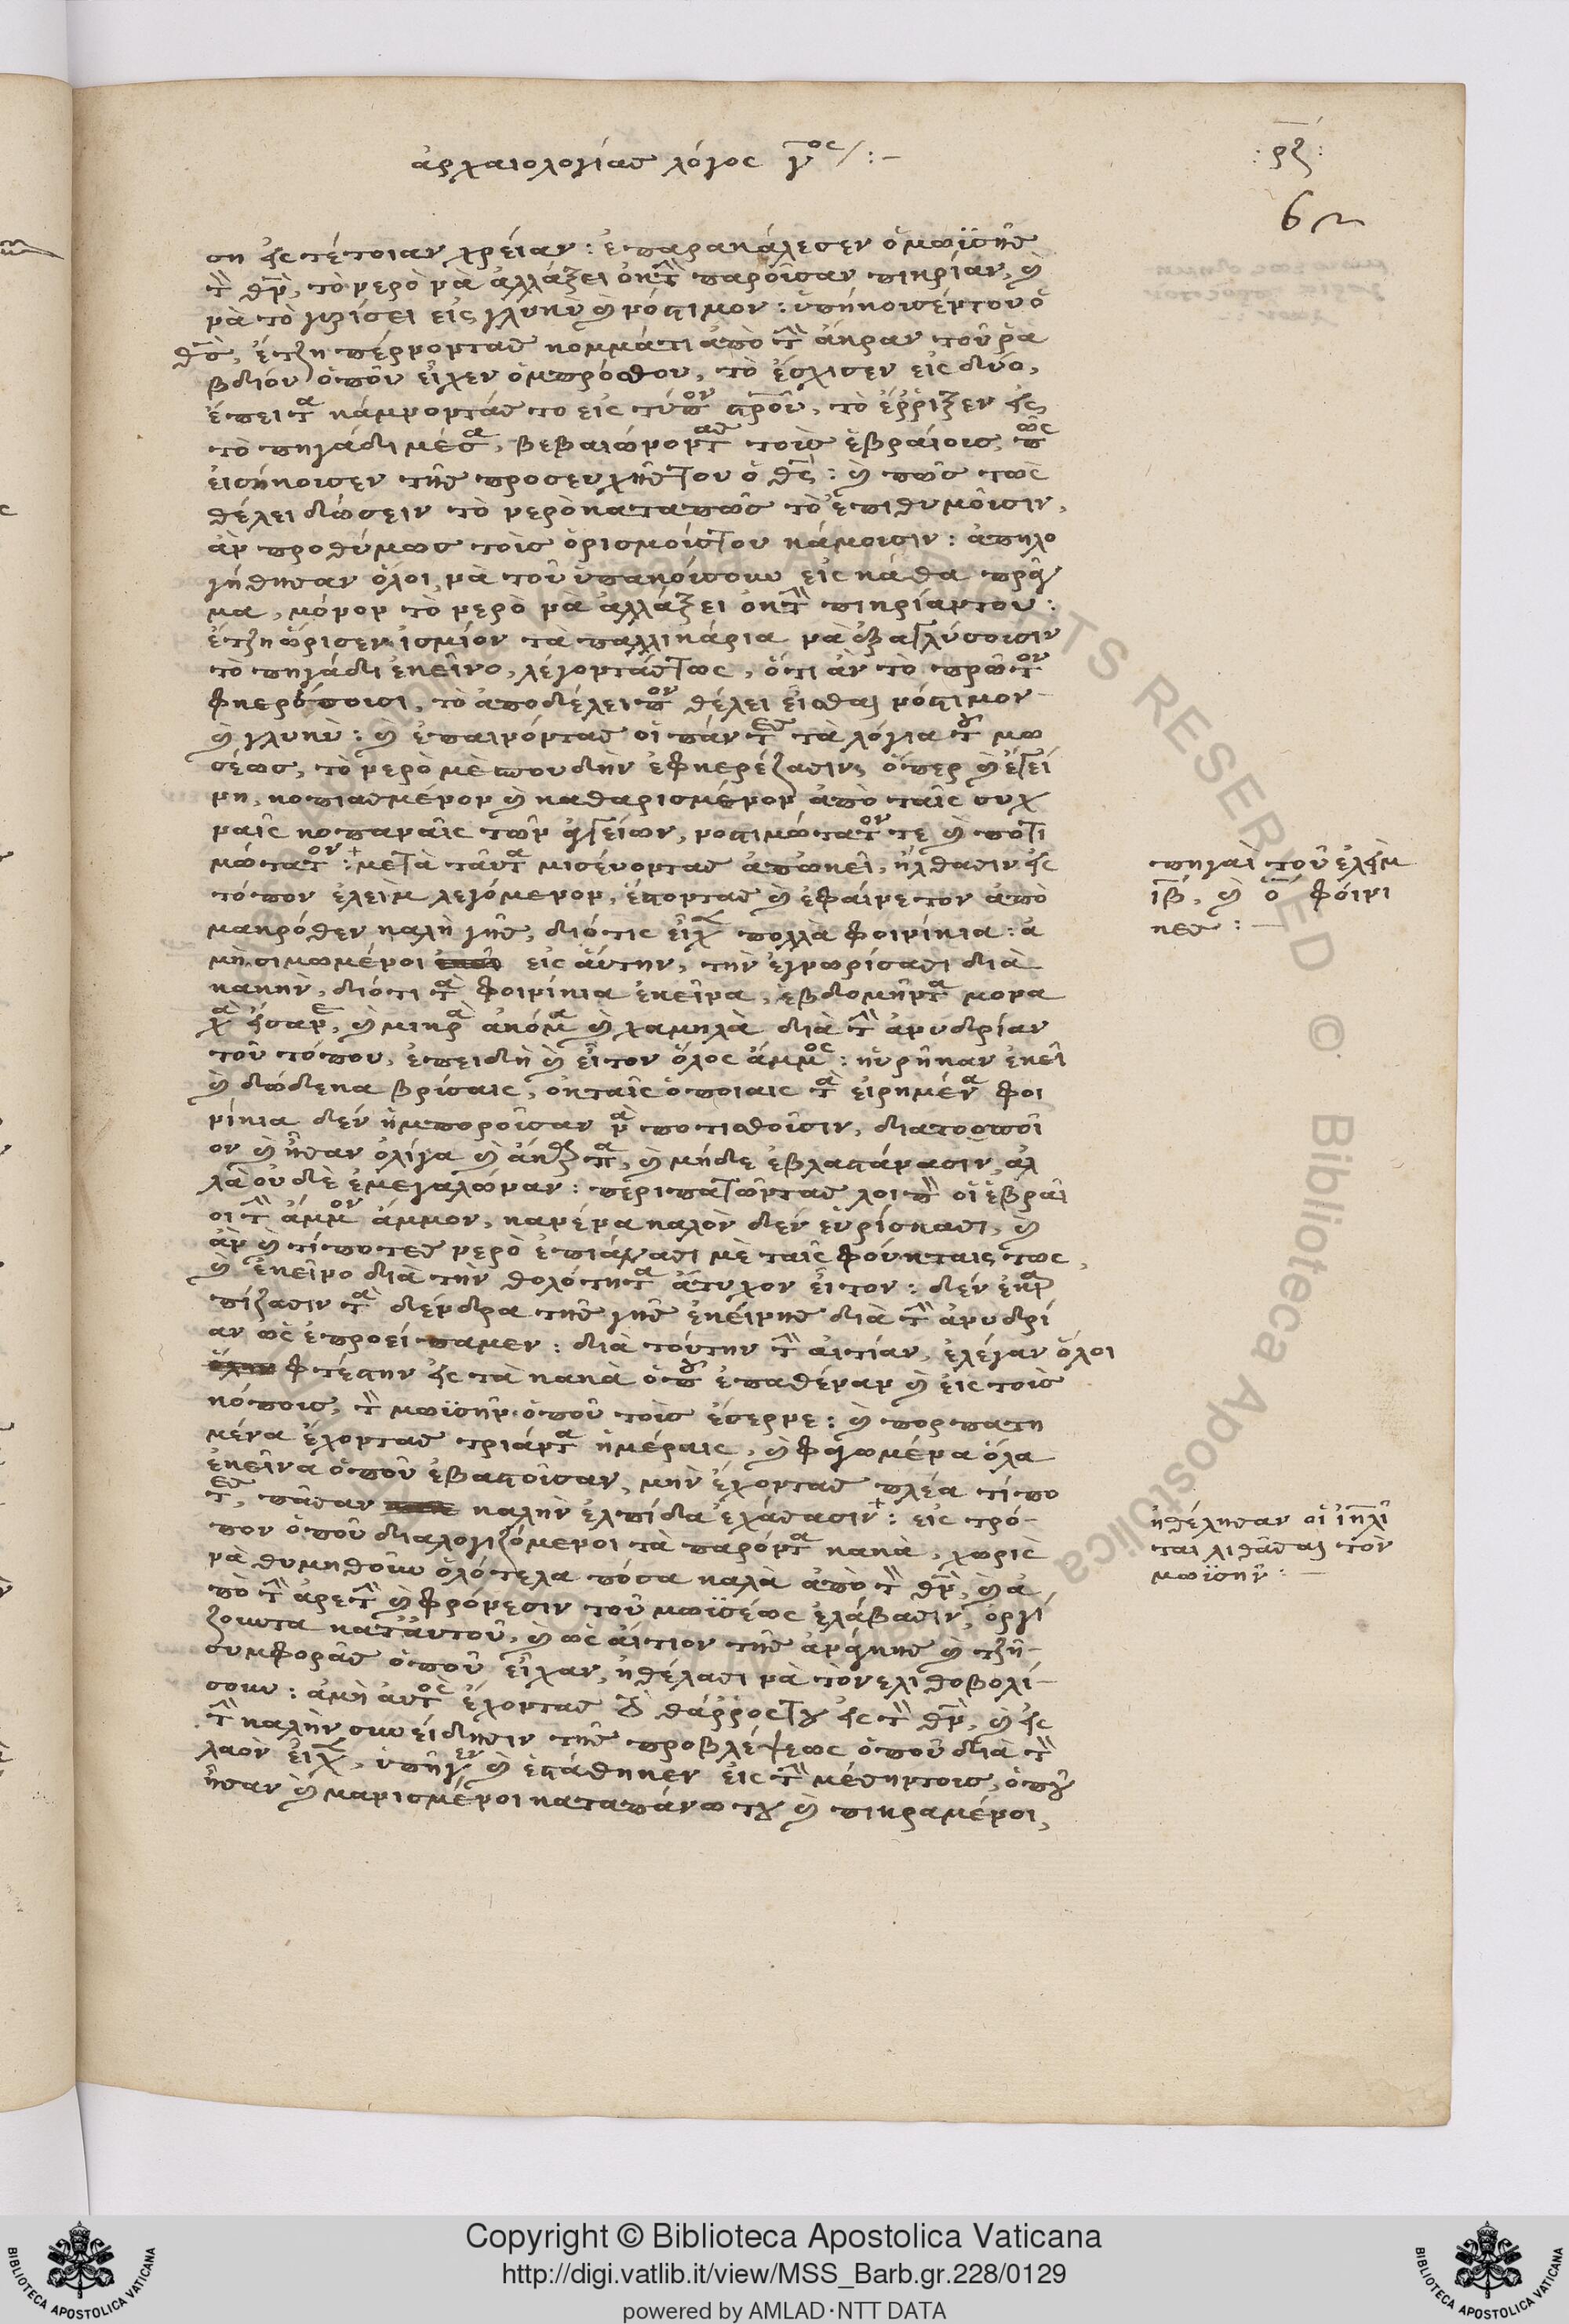 ἀρχαιολογίας λόγος γ^ος/:-
:ρζ:
62
ση εἰς τέτοιαν χρείαν: ἐπαρακάλεσεν ὁ μωϋσῆς
τ̀ θν̀, τὸ νερὸ νὰ ἀλλάξει ἐκ τ̀ παροῦσαν πικρίαν, καὶ
νὰ τὸ γυρίσει εἰς γλυκὺ καὶ νόστιμον: ὑπήκοισέν του ὁ
θς̀, ἔτζη πέρνονταδ κομμάτι ἀπὸ τ̀ ἄκραν τοῦ ρα
βδιοῦ ὁποῦ εἶχεν ὀμπρόσθου, τὸ ἔσχισεν εἰς δύο,
ἔπειτα κάμνοντάς το εἰς τύπον σταυροῦ, τὸ ἔῤῥιξεν εἰς
τὸ πηγάδι μέσα, βεβαιώνοντας τοὶς ἑβραίοις, πῶς
εἰσήκοισεν τῆς προσευχῆς του ὁ θς̀: καὶ πῶς τὼς
θέλει δώσειν τὸ νερὸ καταπῶς τὸ ἐπιθυμοῖσιν,
ἂν προθύμως τοὶς ὁρισμοίς του κάμοισιν: ἀπηλο
γήθησαν ὅλοι νὰ τοῦ ὑπακούσουν εἰς κάθα πρᾶγ
μα, μόνον τὸ νερὸ νὰ ἀλλάξει ἐκ τ̀ πικρίαν του:
ἔτζη ὥρισεν τὰ παλλικάρια νὰ ἐξαντλύσοισιν
τὸ πηγάδι ἐκεῖνο, λέγοντάς τως, ὅτι ἂν τὸ πρῶτον
φκερόποισι, τὸ ἀποδέλειπον θέλει εἶσθαι νόστιμον
καὶ γλυκὺ: καὶ ἐπαιρόντας οἱ πάντες τὰ λόγια τοῦ μω
σέως, τὸ νερὸ μὲ σπουδὴν ἐφκερέζασιν, ὅπερ καὶ ἐγεί
νη, κοπιασμένον καὶ καθαρισμένον ἀπὸ ταῖς συχ
ναῖς κοπαναῖς τῶν ἀγγείων, νοστιμώτατον τε καὶ ποτι
μώτατον:+ μετὰ ταῦτα μισεύοντας ἀπ' ἐκεῖ, ἤλθασιν εἰς
τόπον ἐλεὶμ λεγόμενον, ἔστοντας καὶ ἐφαίνετον ἀπὸ
μακρόθεν καλὴ γῆς, διότις εἶχε πολλὰ φοινίκια: ἀ
μὴ σιμωμένοι εἰς αὐτην, τὴν ἐγνωρίσασι διὰ
κακὴν, διότι τὰ φοινίκια ἐκεῖνα, ἑβδομῆντα μονα
χὰ ἔσανε, καὶ μικρὰ ἀκόμα καὶ χαμηλὰ διὰ τ̀ ἀνυδρίαν
τοῦ τόπου, ἐπειδὴ καὶ εἶτον ὅλος ἄμμος: ηὑρῆκαν ἐκεῖ
καὶ δώδεκα βρίσαις, ἐκ ταῖς ὁποιαις τὰ εἰρημένα φοι
νίκια δέν ἠμποροῦσαν νὰ ποτισθοῦσιν, διατοσοῖ
ον καὶ ἦσαν ὀλίγα καὶ , καὶ μήδε ἐβλαστάνασιν, ἀλ
λὰ οὐδὲ ἐμεγαλώναν: περιπατῶντας λοιπὸν οἱ ἑβραῖ
οι τ̀ ἄμμον ἄμμον, κανένα καλὸν δέν εὑρίσκασι, καὶ
ἂν καὶ τίποτες νερὸ ἐπιάνασι μὲ ταῖς φούκταις τως,
καὶ ἐκεῖνο διὰ τὴν θολότητα ἄτυχον εἶτον: δέν ἐκαρ
πίζασιν τὰ δένδρα τῆς γῆς ἐκείνης διὰ τ̀ ἀνυδρί
αν ὡς ἐπροείπαμεν: διὰ τούτην τ̀ αἰτίαν, ἐλέγαν ὅλοι
φτέστην εἰς τὰ κακὰ ὁποῦ ἐπαθέναν καὶ εἰς τοὶς
κόποις, τ̀ μωϋσῆν ὁποῦ τοὶς ἔσερνε: καὶ πορπατη
μένα ἔχοντας τριάντα ἡμέραις, καὶ φαγωμένα ὅλα
ἐκεῖνα ὁποῦ ἐβαστοῦσαν, μὴν ἔχοντας πλέα τίπο
τες, πᾶσαν καλὴν ἐλπίδα ἐχάσασιν+: εἰς τρό-
πον ὁποῦ διαλογιζόμενοι τὰ παρόντα κακὰ, χωρὶς
νὰ θυμηθοῦν ὁλότελα πόσα καλὰ ἀπὸ τ̀ θν̀, καὶ ἀ
πὸ τ̀ ἀρετ̀ καὶ φρόνεσιν τοῦ μωϋσέως ἐλάβασιν, ὀργί
ζουντα κατ' αὐτοῦ, καὶ ὡς αἴτιον τῆς ἀνάγκης καὶ τζῆ-
συμφορᾶς ὁποῦ εἶχαν, ἠθέλασι νὰ τὸν ελιθοβολί-
σουν: ἀμὴ αὐτὸς ἔχοντας τὸ θάῤῥος του εἰς τ̀ θν̀, καὶ εἰς
τ̀ καλὴν συνείδησιν τῆς προβλέψεως ὁποῦ διὰ τ̀
λαὸν εἶχε, ὑπῆγεν καὶ ἐστάθηκεν εἰς τ̀ μέσην τοις, ὁποῦ
ἦσαν καὶ μανισμένοι καταπάνω του καὶ πικραμένοι,
πηγαὶ τοῦ ἐλεὶμ
ιβ, καὶ ο φοίνι
κες:-
ἠθέλησαν οἱ ἰηλῖ
ται λιθᾶσαι τὸν
μωϋσῆν:-
Copyright © Biblioteca Apostolica Vaticana
http://digi.vatlib.it/view/MSS_Barb.gr.228/0129
powered by AMLAD·NTT DATA
BIBLIOTECA APOSTOLICA VATICANA
BIBLIOTECA APOSTOLICA VATICANA